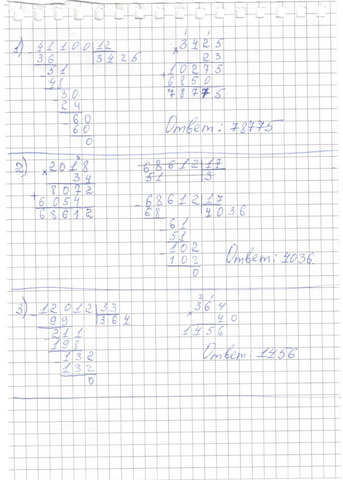 1) 41100 | 12
36 | 3425
- 51
48
- 30
24
- 60
60
0
× 3425
23
+ 10275
6850
78775
Ответ: 78775
2) × 2018
34
+ 8072
6054
68612
68612 | 17
51 | 3
- 68612 | 17
68 | 4036
- 61
51
- 102
102
0
Ответ: 4036
3) - 12012 | 33
99 | 364
- 211
198
- 132
132
0
2 1
× 364
40
1456
Ответ: 1456